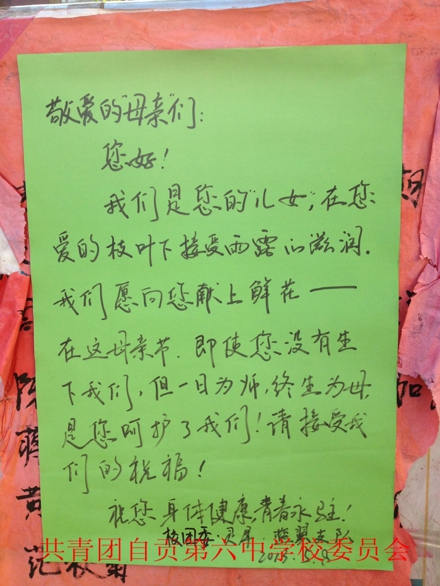 敬爱的“母亲”们：
您好！
我们是您的“儿女”，在您
爱的枝叶下接受雨露的滋润.
我们愿向您献上鲜花——
在这母亲节.即使您没有生
下我们，但一日为师，终生为母，
是您呵护了我们！请接受我
们的祝福！
祝您身体健康青春永驻！
校团委
共青团自贡第六中学校委员会